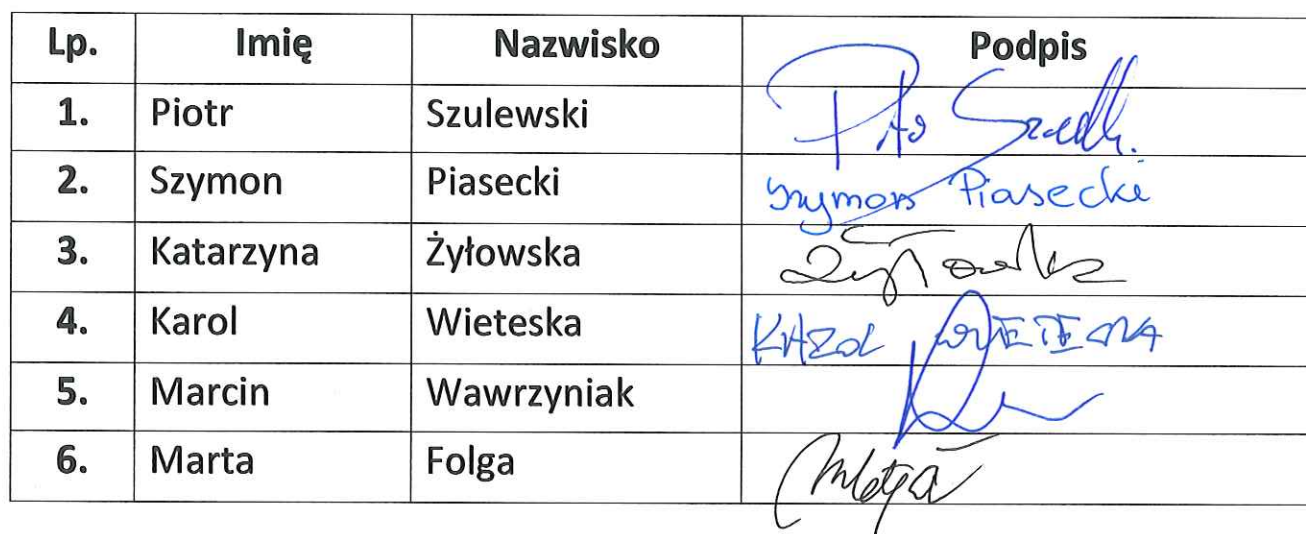 Lp. Imię Nazwisko Podpis
1. Piotr Szulewski
2. Szymon Piasecki Szymon Piasecki
3. Katarzyna Żyłowska Żyłowska
4. Karol Wieteska KAROL WIETESKA
5. Marcin Wawrzyniak
6. Marta Folga MFolga